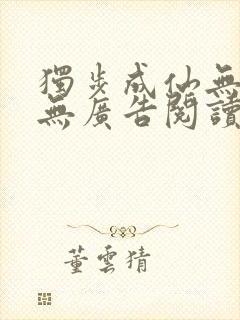 獨步成仙無
無廣告閱讀
董雲猜